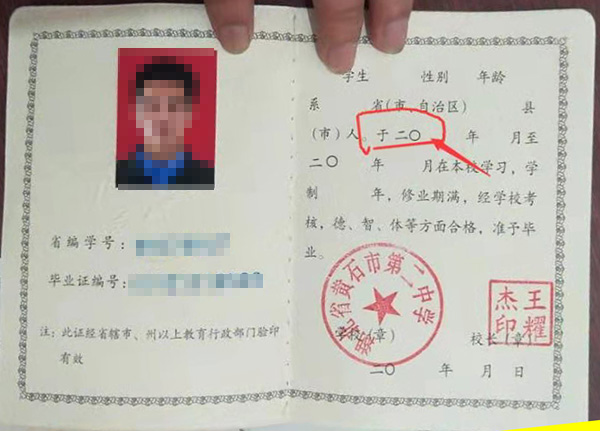 省编学号：
毕业证编号：
注：此证经省辖市、州以上教育行政部门验印
有效
学生 性别 年龄
系 省（市、自治区） 县
（市）人。于二〇 年 月至
二〇 年 月在本校学习，学
制 年，修业期满，经学校考
核，德、智、体等方面合格，准予毕
业。
湖北省黄石市第二中学
王耀杰印
学校（章） 校长（章）
二〇 年 月 日